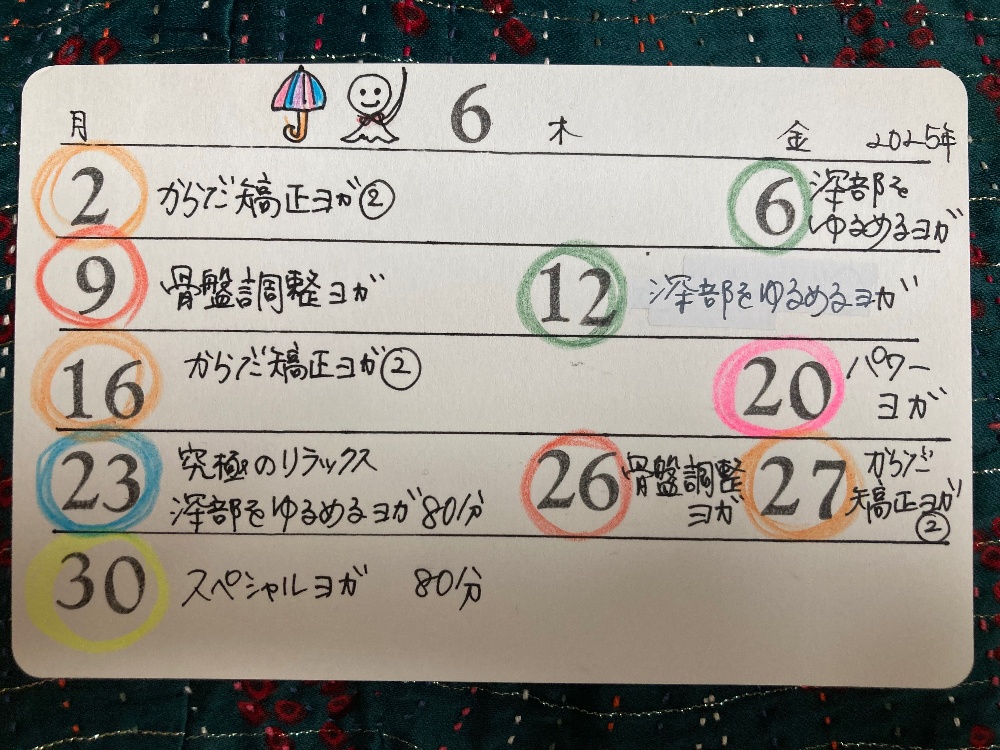 月 6 木 金 2025年
2 からだ矯正ヨガ②
6 深部を
ゆるめるヨガ
9 骨盤調整ヨガ
12 深部をゆるめるヨガ
16 からだ矯正ヨガ②
20 パワー
ヨガ
23 究極のリラックス
深部をゆるめるヨガ80分
26 骨盤調整
ヨガ
27 からだ
矯正ヨガ
②
30 スペシャルヨガ 80分